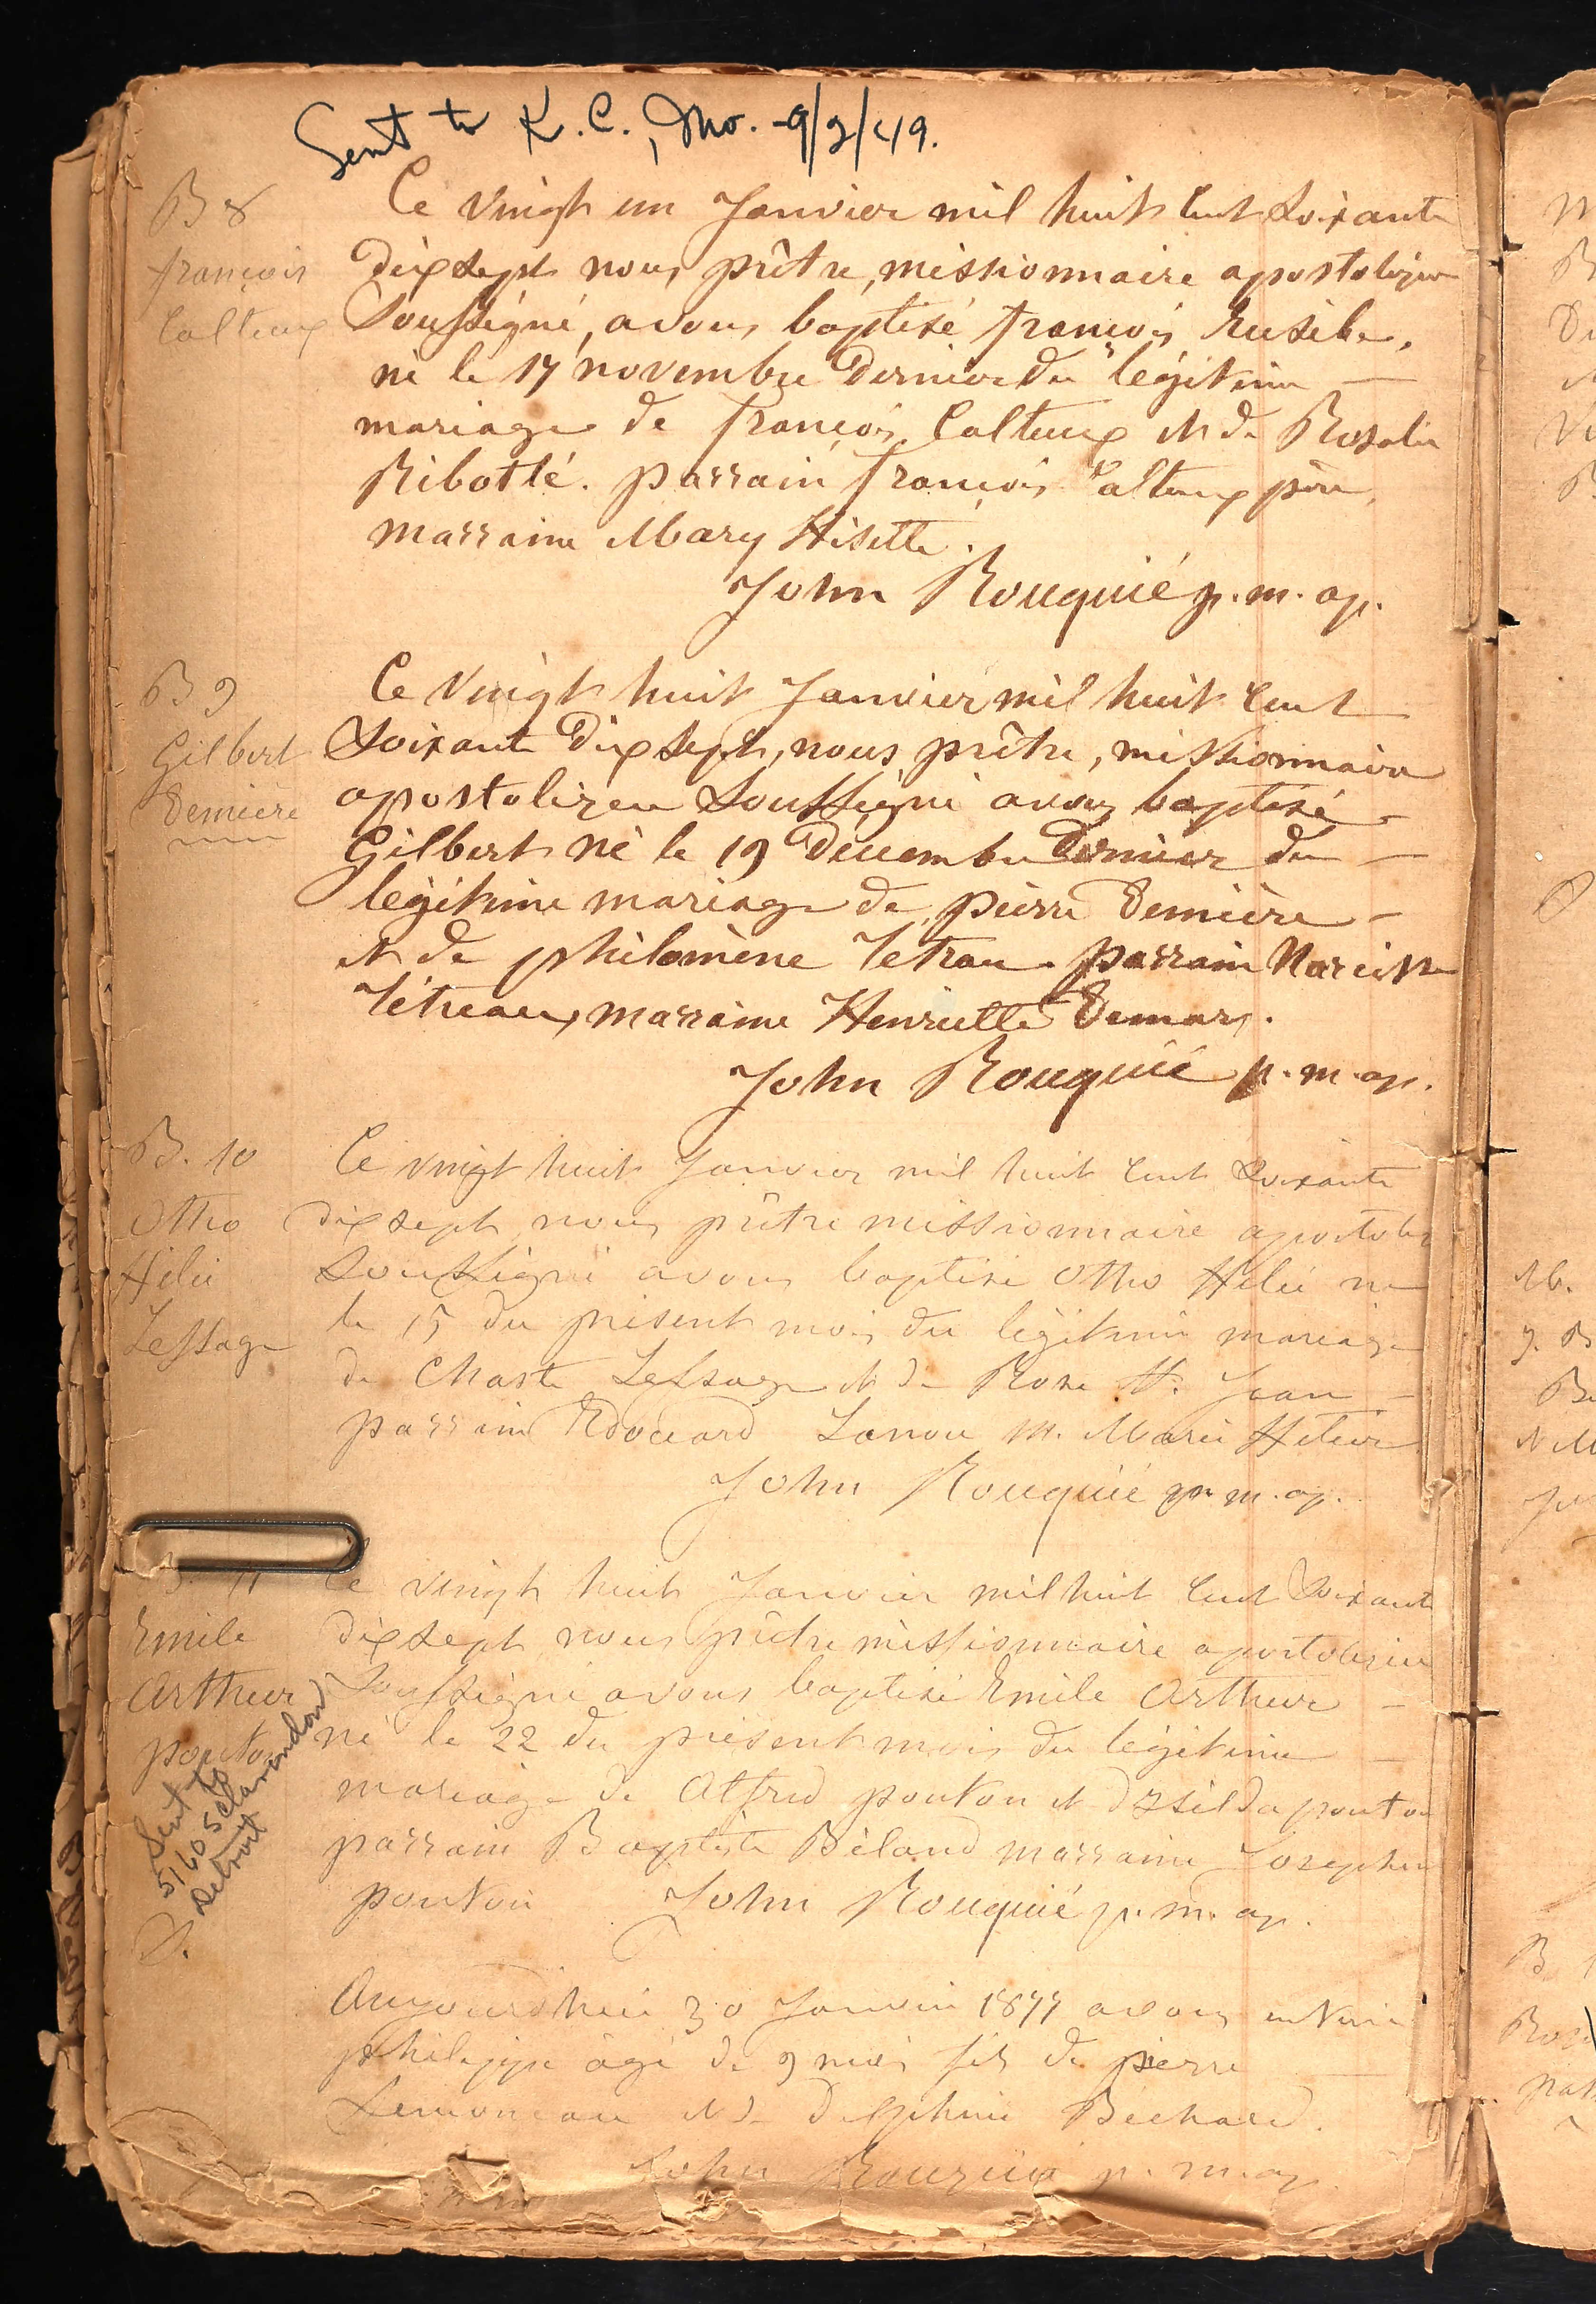 Sent to K.C., Mo. - 9/2/49.
B 8
françois
Calteux
Ce vingt un Janvier mil huit cent soixante
dix sept nous prêtre, missionnaire apostolique
soussigné, avons baptisé françois Eusèbe,
né le 17 novembre dernier du légitime —
mariage de françois Calteux et de Rosalie
Ribotté. parrain françois Calteux père,
marraine Mary Hisette.
John Rouquié p. m. ap.
B 9
Gilbert
Demière
Ce vingt huit Janvier mil huit cent
soixante dix sept, nous prêtre, missionnaire
apostolique soussigné avons baptisé
Gilbert né le 19 décembre dernier du —
légitime mariage de pierre Demière —
et de philomène Tetrau. parrain Narcisse
Tétreau, marraine Henriette Demars.
John Rouquié p. m. ap.
B. 10
Otho
Hélie
Lessage
Ce vingt huit Janvier mil huit cent soixante
dix sept nous prêtre missionnaire apostoliq
soussigné avons baptisé Otho Hélie né
le 15 du présent mois du légitime mariage
de Lessage et de Rose St. Jean —
parrain Edouard Lanou m. Marie
John Rouquié p. m. ap.
B. 11
Emile
Arthur
pouton
Ce vingt huit Janvier mil huit cent soixante
dix sept nous prêtre missionnaire apostolique
soussigné avons baptisé Emile Arthur —
né le 22 du présent mois du légitime —
mariage de Alfred pouton et d'Esilda pouton
parrain Baptiste Béland marraine Josephine
pouton John Rouquié p. m. ap.
Sent to
5160 Sclarendon
Detroit
D.
Aujourd'hui 30 Janvier 1877 avons enterré
philippe âgé de 9 mois fils de pierre
Lemoneau et de Delphine Bechard.
John Rouquié p. m. ap.